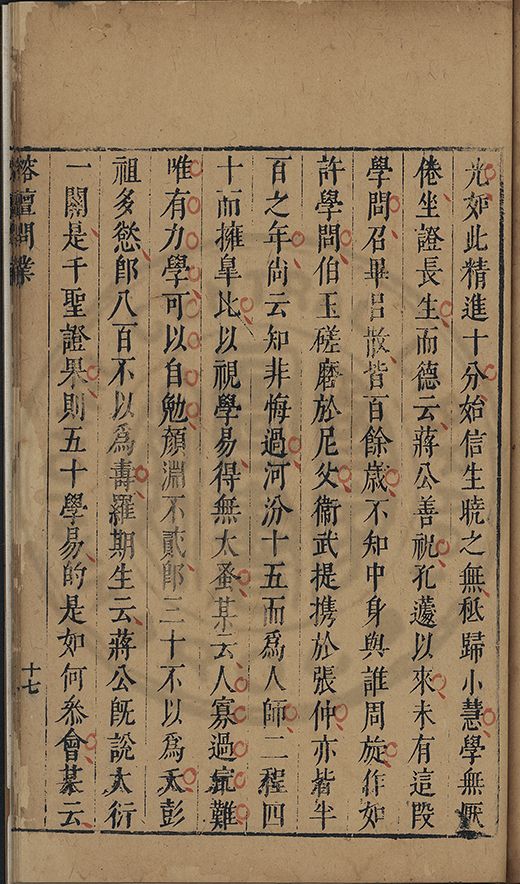 光如此精進十分始信生曉之無秪歸小慧學無厭
倦坐證長生而德云蔣公善祝孔蘧以來未有這段
學問召畢呂散皆百餘歲不知中身與誰周旋作如
許學問伯玉磋磨於尼父衞武提携於張仲亦皆半
百之年尚云知非悔過河汾十五而為人師二程四
十而擁皐比以視學易得無太蚤某云人寡過寔難
唯有力學可以自勉顏淵不貳卽三十不以為夭彭
祖多慾卽八百不以為壽羅期生云蔣公旣說大衍
一關是千聖證果則五十學易的是如何叅會某云
榕壇問業
十七